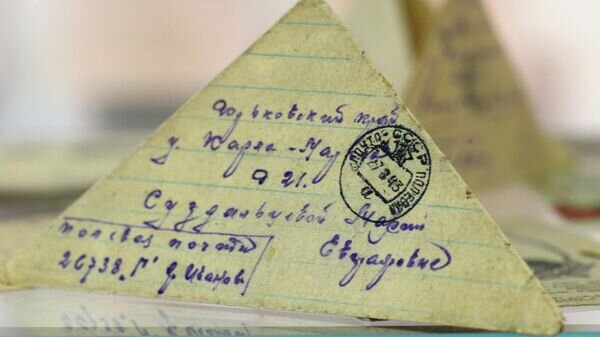 Горьковский край
у Карла-Мар
д 21.
Суздальцевой Марии
Евграфовне
полевая почта
26738 „Г"
ПОЧТА-СССР ПОЛЕВАЯ
а